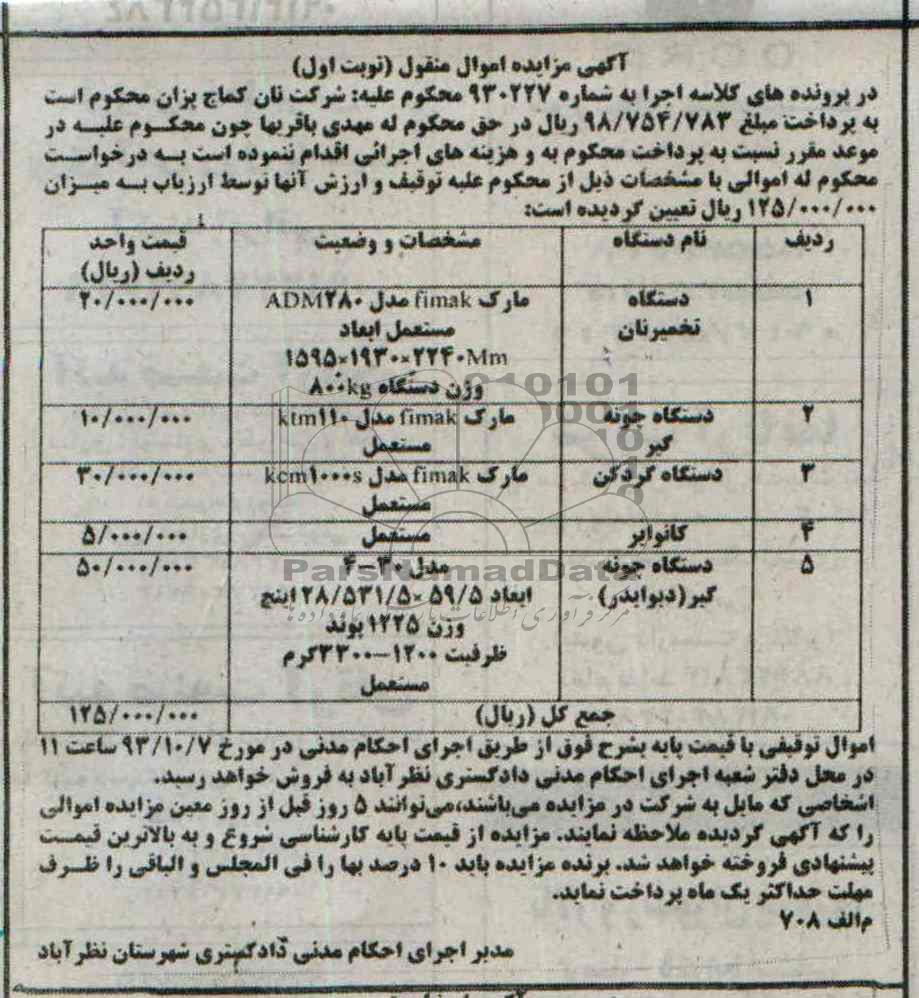 آگهی مزایده اموال منقول (نوبت اول)
در پرونده های کلاسه اجرا به شماره ۹۳۰۲۲۷ محکوم علیه: شرکت نان کماج پزان محکوم است
به پرداخت مبلغ ۹۸/۷۵۴/۷۸۳ ریال در حق محکوم له مهدی باقربها چون محکوم علیه در
موعد مقرر نسبت به پرداخت محکوم به و هزینه های اجرائی اقدام ننموده است به درخواست
محکوم له اموالی با مشخصات ذیل از محکوم علیه توقیف و ارزش آنها توسط ارزیاب به میزان
۱۲۵/۰۰۰/۰۰۰ ریال تعیین گردیده است:
ردیف نام دستگاه مشخصات و وضعیت قیمت واحد
ردیف (ریال)
۱ دستگاه مارک fimak مدل ADM۲۸۰ ۲۰/۰۰۰/۰۰۰
تخمیرنان مستعمل ابعاد
۱۵۹۵×۱۹۳۰×۲۲۴۰Mm
وزن دستگاه ۸۰۰kg
۲ دستگاه چونه مارک fimak مدل ktm۱۱۰ ۱۰/۰۰۰/۰۰۰
گیر مستعمل
۳ دستگاه گردکن مارک fimak مدل kcm۱۰۰۰s ۳۰/۰۰۰/۰۰۰
مستعمل
۴ کانوایر مستعمل ۵/۰۰۰/۰۰۰
۵ دستگاه چونه مدل ۳۰-۴ ۵۰/۰۰۰/۰۰۰
گیر(دیوایدر) ابعاد ۵۹/۵× ۲۸/۵۳۱/۵ اینچ
وزن ۱۲۲۵ پوند
ظرفیت ۱۲۰۰-۳۳۰۰گرم
مستعمل
جمع کل (ریال) ۱۲۵/۰۰۰/۰۰۰
اموال توقیفی با قیمت پایه بشرح فوق از طریق اجرای احکام مدنی در مورخ ۹۳/۱۰/۷ ساعت ۱۱
در محل دفتر شعبه اجرای احکام مدنی دادگستری نظرآباد به فروش خواهد رسید.
اشخاصی که مایل به شرکت در مزایده می‌باشند،می‌توانند ۵ روز قبل از روز معین مزایده اموالی
را که آگهی گردیده ملاحظه نمایند. مزایده از قیمت پایه کارشناسی شروع و به بالاترین قیمت
پیشنهادی فروخته خواهد شد. برنده مزایده باید ۱۰ درصد بها را فی المجلس و الباقی را ظرف
مهلت حداکثر یک ماه پرداخت نماید.
م‌الف ۷۰۸
مدیر اجرای احکام مدنی دادگستری شهرستان نظرآباد
ParsNamadData